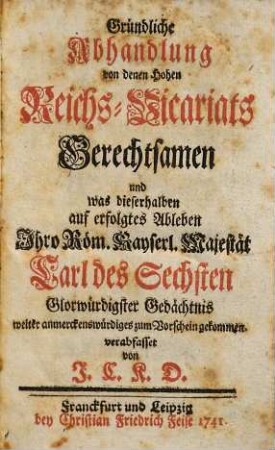 Gründliche
Abhandlung
von denen Hohen
Reichs-Vicariats
Gerechtsamen
und
was dieserhalben
auf erfolgtes Ableben
Ihro Röm. Kayserl. Majestät
Carl des Sechsten
Glorwürdigster Gedächtnis
weiter anmerckenswürdiges zum Vorschein gekommen.
verabfasset
von
J. C. K. D.
Franckfurt und Leipzig
bey Christian Friedrich Feise 1741.